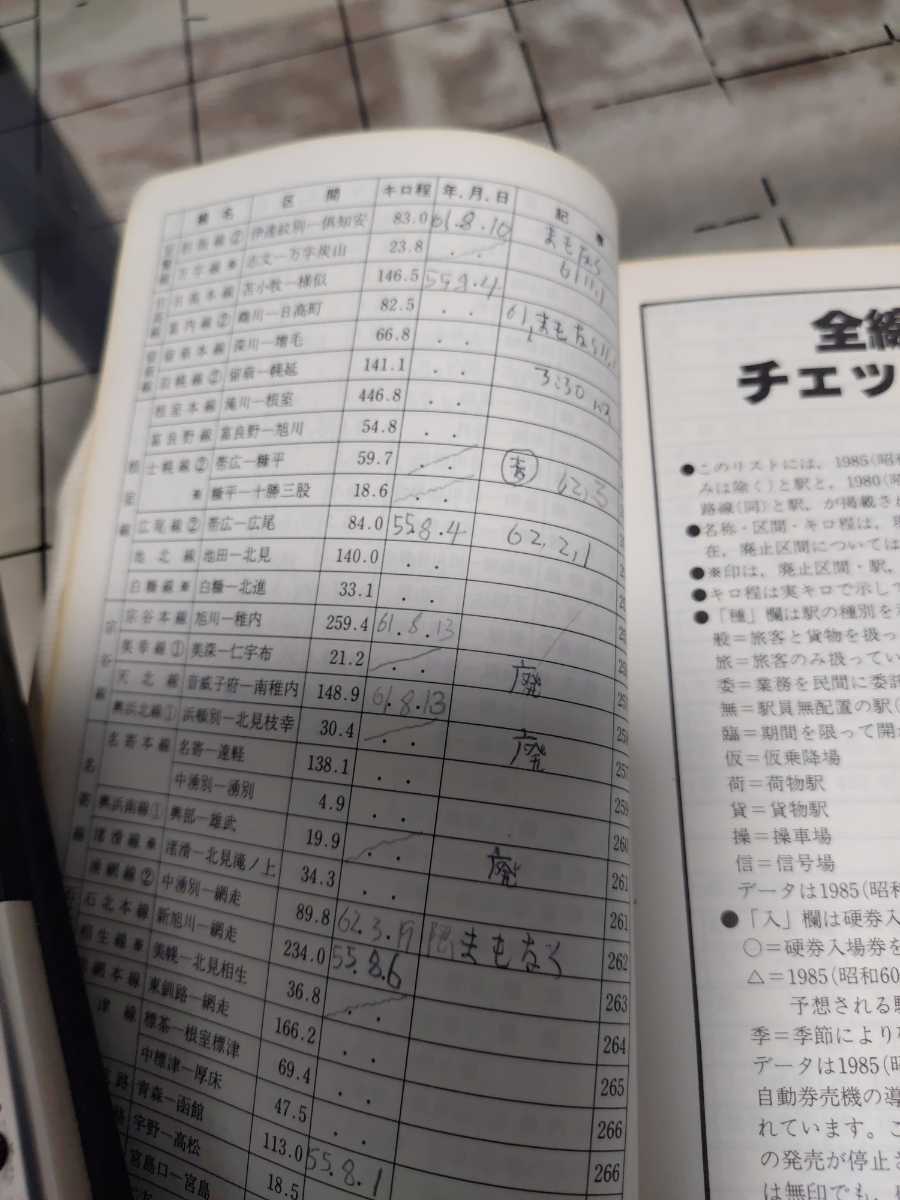 線名 区間 キロ程 年.月.日 記
胆振線② 伊達紋別―倶知安 83.0 61.8.10 まもなく 61.11.1
万字線※ 志文―万字炭山 23.8
日高本線 苫小牧―様似 146.5 55.8.4
富内線② 鵡川―日高町 82.5 61. まもなく
留萌本線 深川―増毛 66.8
羽幌線② 留萌―幌延 141.1 3.30
根室本線 滝川―根室 446.8
富良野線 富良野―旭川 54.8
士幌線② 帯広―糠平 59.7 62.3
※ 糠平―十勝三股 18.6
広尾線② 帯広―広尾 84.0 55.8.4 62.2.1
池北線 池田―北見 140.0
白糠線※ 白糠―北進 33.1
宗谷本線 旭川―稚内 259.4 61.8.13
美幸線① 美深―仁宇布 21.2 廃
天北線 音威子府―南稚内 148.9 61.8.13
興浜北線① 浜頓別―北見枝幸 30.4 廃 257
名寄本線 名寄―遠軽 138.1 259
中湧別―湧別 4.9 260
興浜南線① 興部―雄武 19.9 廃 261
渚滑線※ 渚滑―北見滝ノ上 34.3 261
湧網線② 中湧別―網走 89.8 62.3.19 まもなく 262
石北本線 新旭川―網走 234.0 55.8.6 263
相生線※ 美幌―北見相生 36.8 264
網本線 東釧路―網走 166.2 265
津線 標茶―根室標津 69.4 266
中標津―厚床 47.5 266
青森―函館 113.0 55.8.1
宇野―高松 18.5
宮島口―宮島
全線
チェッ
●このリストには，1985(昭
みは除く)と駅と，1980(昭
路線(同)と駅，が掲載さ
●名称・区間・キロ程は，現
在，廃止区間については
●※印は，廃止区間・駅，
●キロ程は実キロで示して
●「種」欄は駅の種別を
般＝旅客と貨物を扱っ
旅＝旅客のみ扱ってい
委＝業務を民間に委託
無＝駅員無配置の駅(
臨＝期間を限って開
仮＝仮乗降場
荷＝荷物駅
貨＝貨物駅
操＝操車場
信＝信号場
データは1985(昭和
●「入」欄は硬券入
○＝硬券入場券を
△＝1985(昭和60
予想される駅
季＝季節により
データは1985(昭
自動券売機の導
れています。こ
の発売が停止さ
は無印でも，